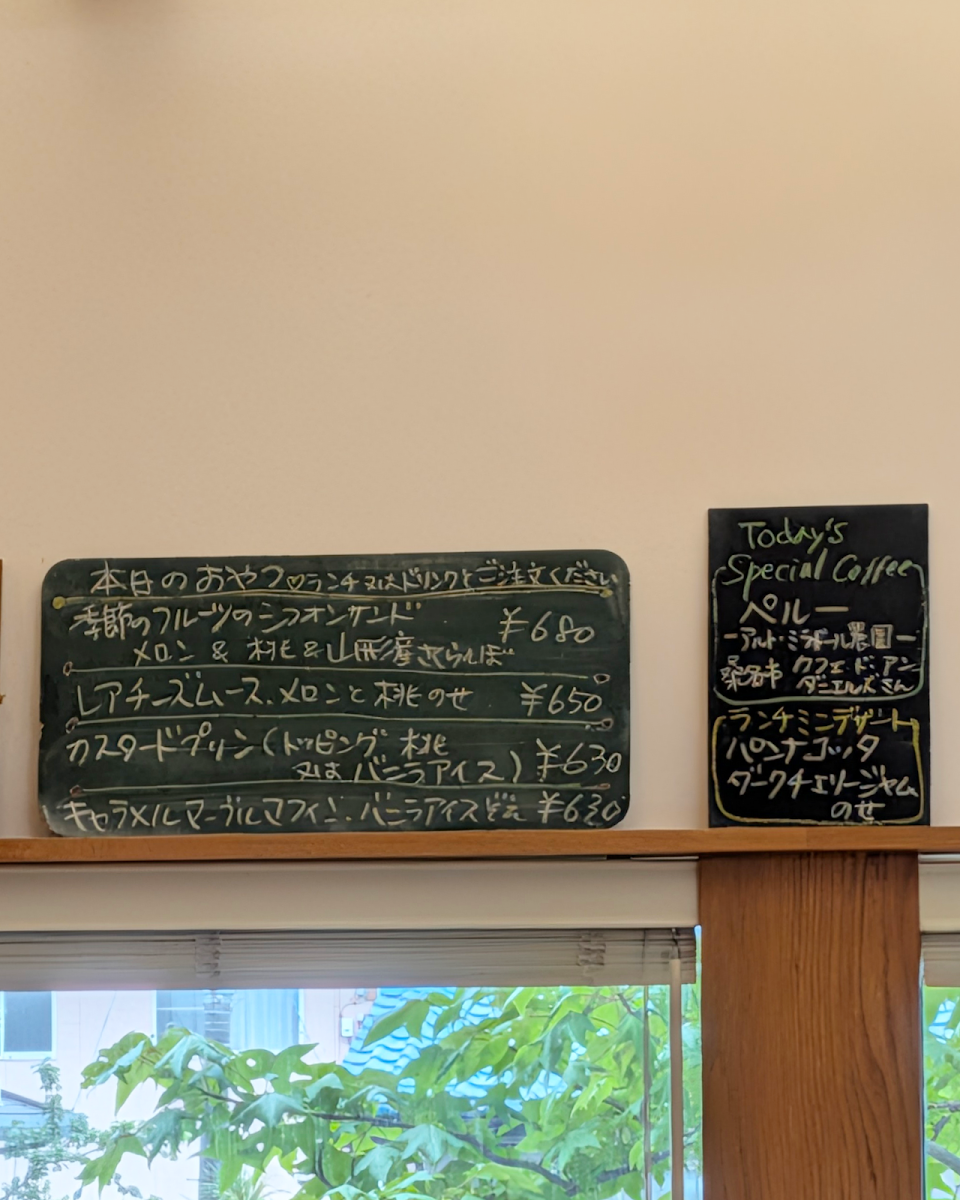 本日のおやつ♡ランチ又はドリンクとご注文ください
季節のフルーツのシフォンサンド ¥680
メロン & 桃 & 山形産さくらんぼ
レアチーズムース、メロンと桃のせ ¥650
カスタードプリン(トッピング 桃
又は バニラアイス) ¥630
キャラメルマーブルマフィン、バニラアイス ¥630
Today's
Special Coffee
ペルー
ーアルド・ミラボール農園ー
桑名市 カフェ・ド・アン
ダニエルズさん
ランチミニデザート
パンナコッタ
ダークチェリージャム
のせ